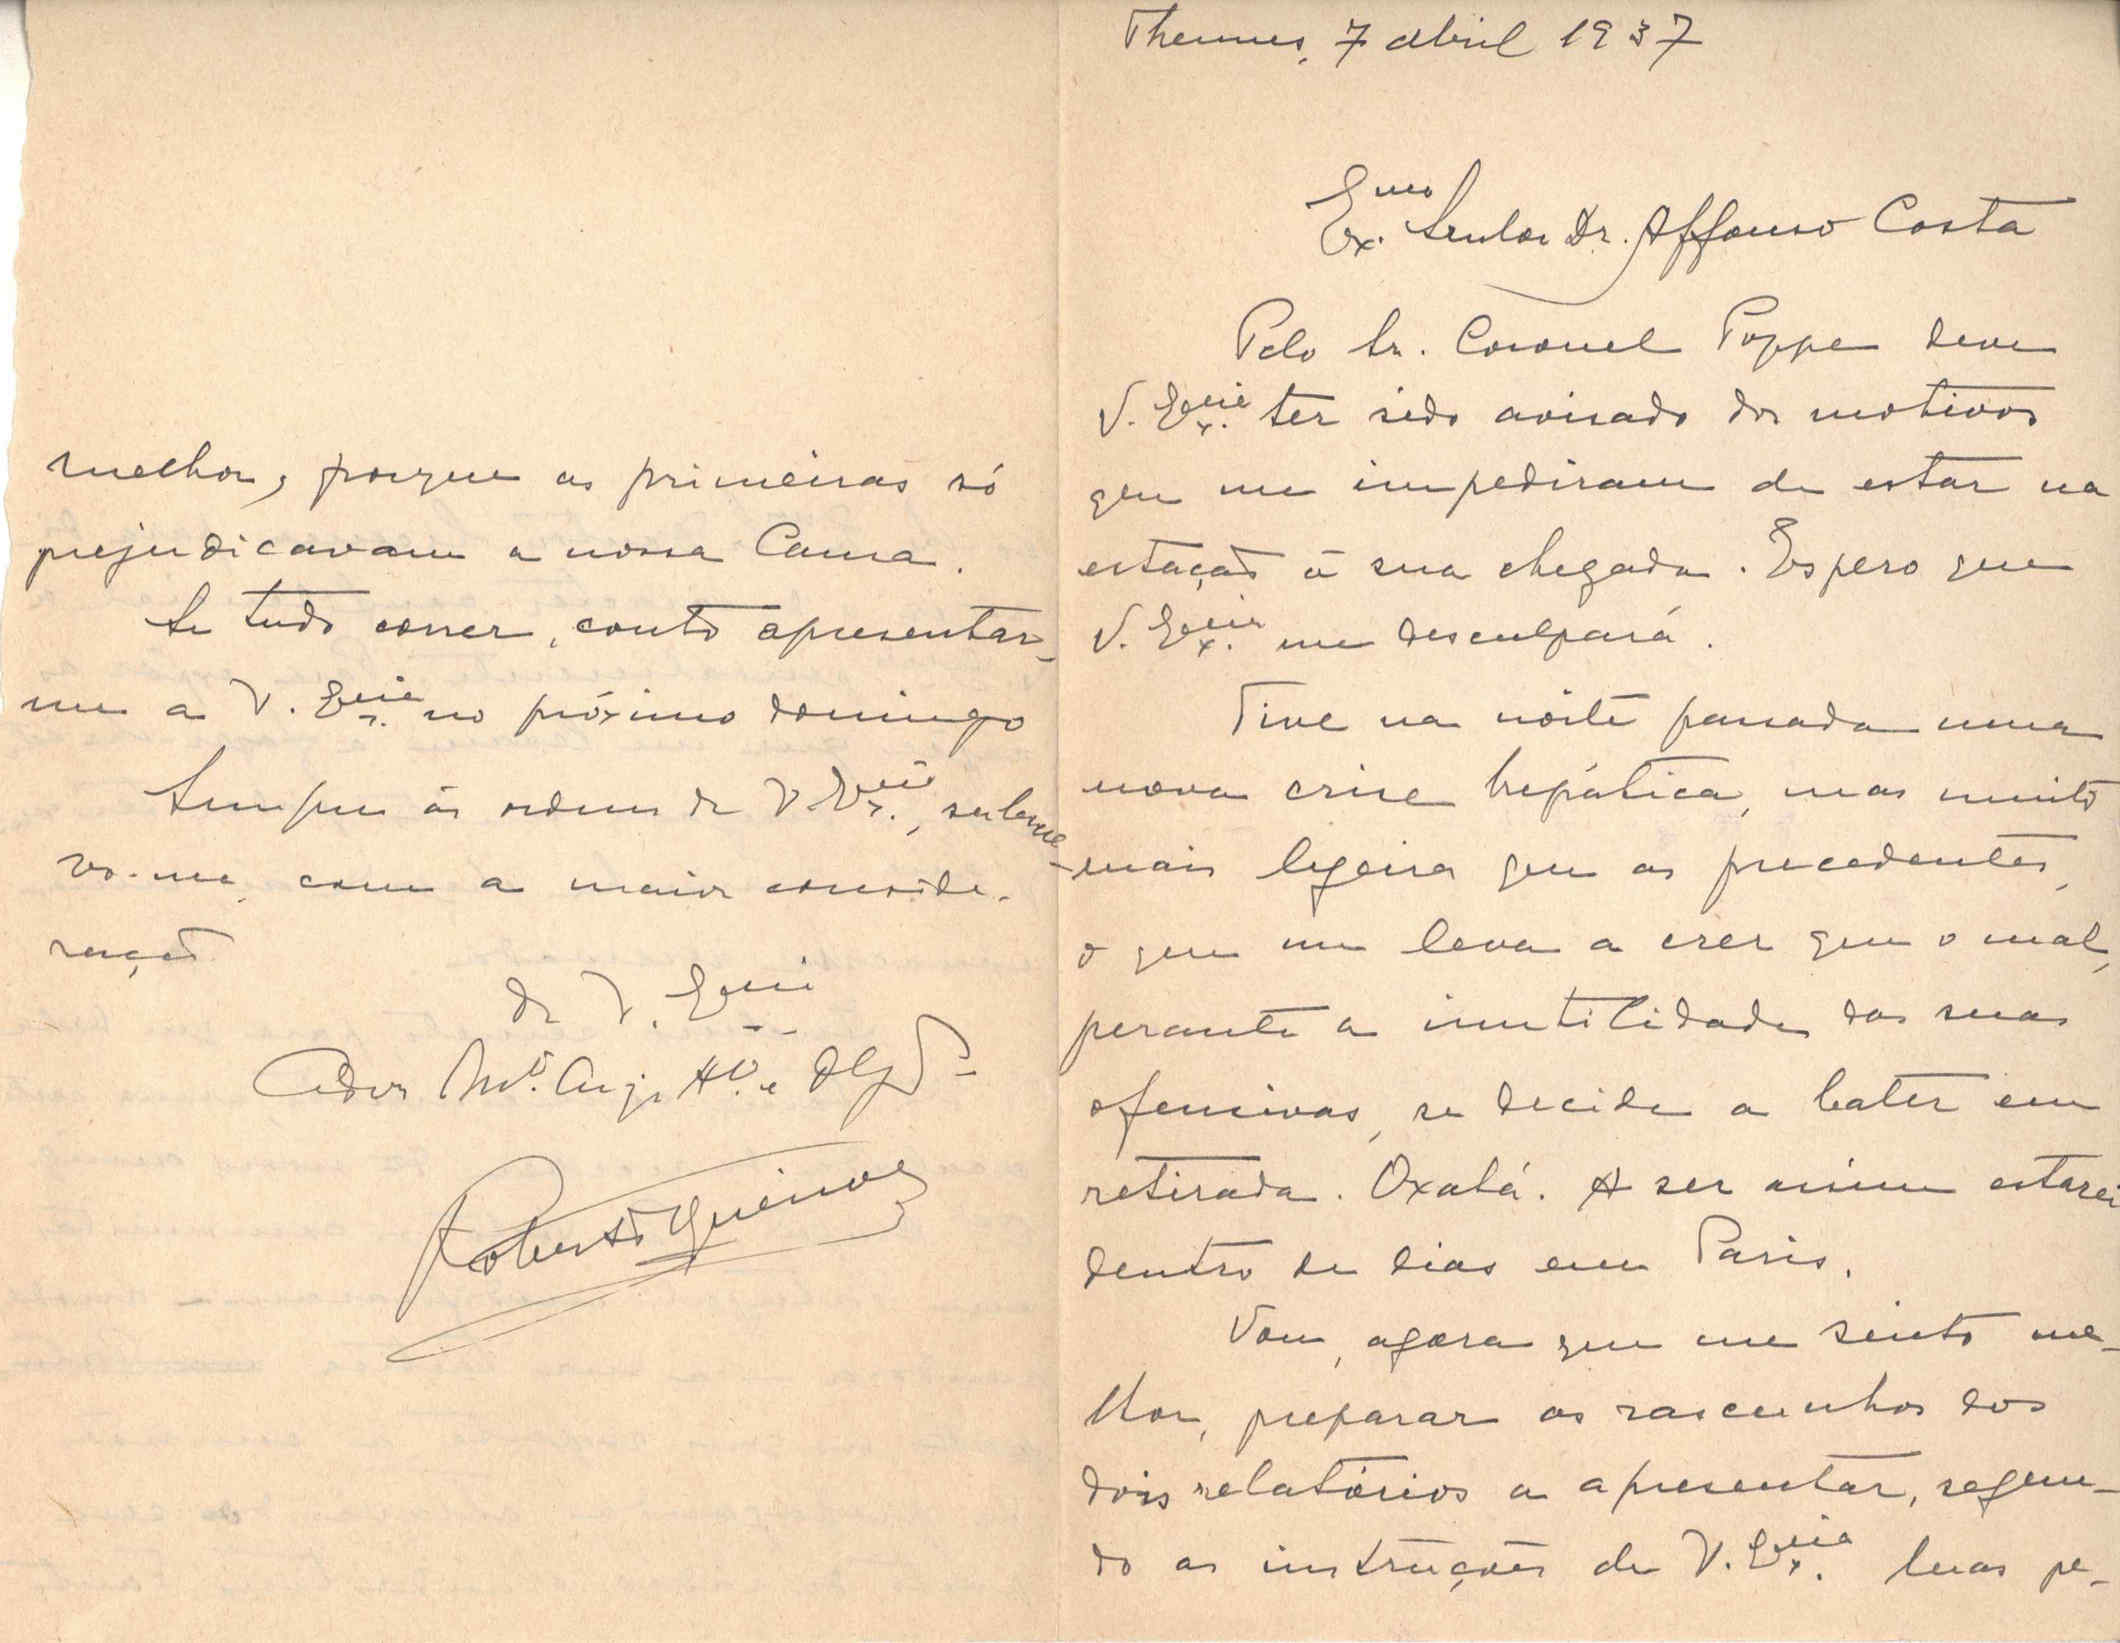 Thennes, 7 abril 1937
Exmo. Senhor Dr. Affonso Costa
Pelo Sr. Coronel Poppe deve
V. Excia. ter sido avisado dos motivos
que me impediram de estar na
estação á sua chegada. Espero que
V. Excia. me desculpará.
Tive na noite passada uma
nova crise hepática, mas muito
mais ligeira que as precedentes,
o que me leva a crer que o mal,
perante a inutilidade das suas
ofensivas, se decide a bater em
retirada. Oxalá. A ser assim estarei
dentro de dias em Paris.
Vou, agora que me sinto me-
lhor, preparar os rascunhos dos
dois relatórios a apresentar, segun-
do as instruções de V. Excia. Suas pe-
melhor, porque as primeiras só
prejudicavam a nossa Causa.
Se tudo correr, conto apresentar-
me a V. Excia. no próximo domingo
Sempre ás ordens de V. Excia., subscre-
vo-me, com a maior conside-
ração
de V. Excia
Ador Mto. At. e
Roberto Queiroz